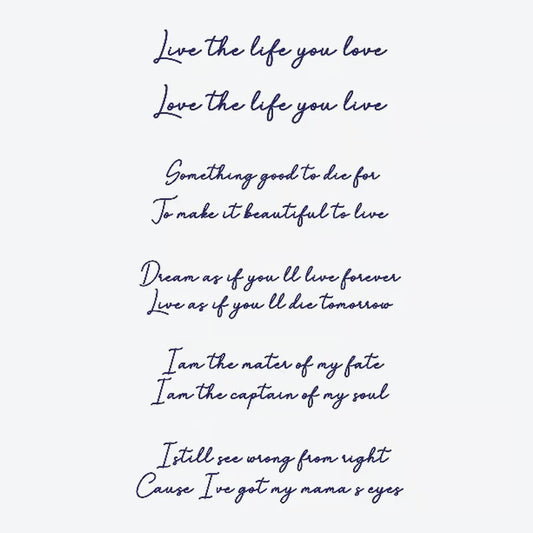 Live the life you love
Love the life you live
Something good to die for
To make it beautiful to live
Dream as if you ll live forever
Live as if you ll die tomorrow
I am the mater of my fate
I am the captain of my soul
I still see wrong from right
Cause I ve got my mama s eyes